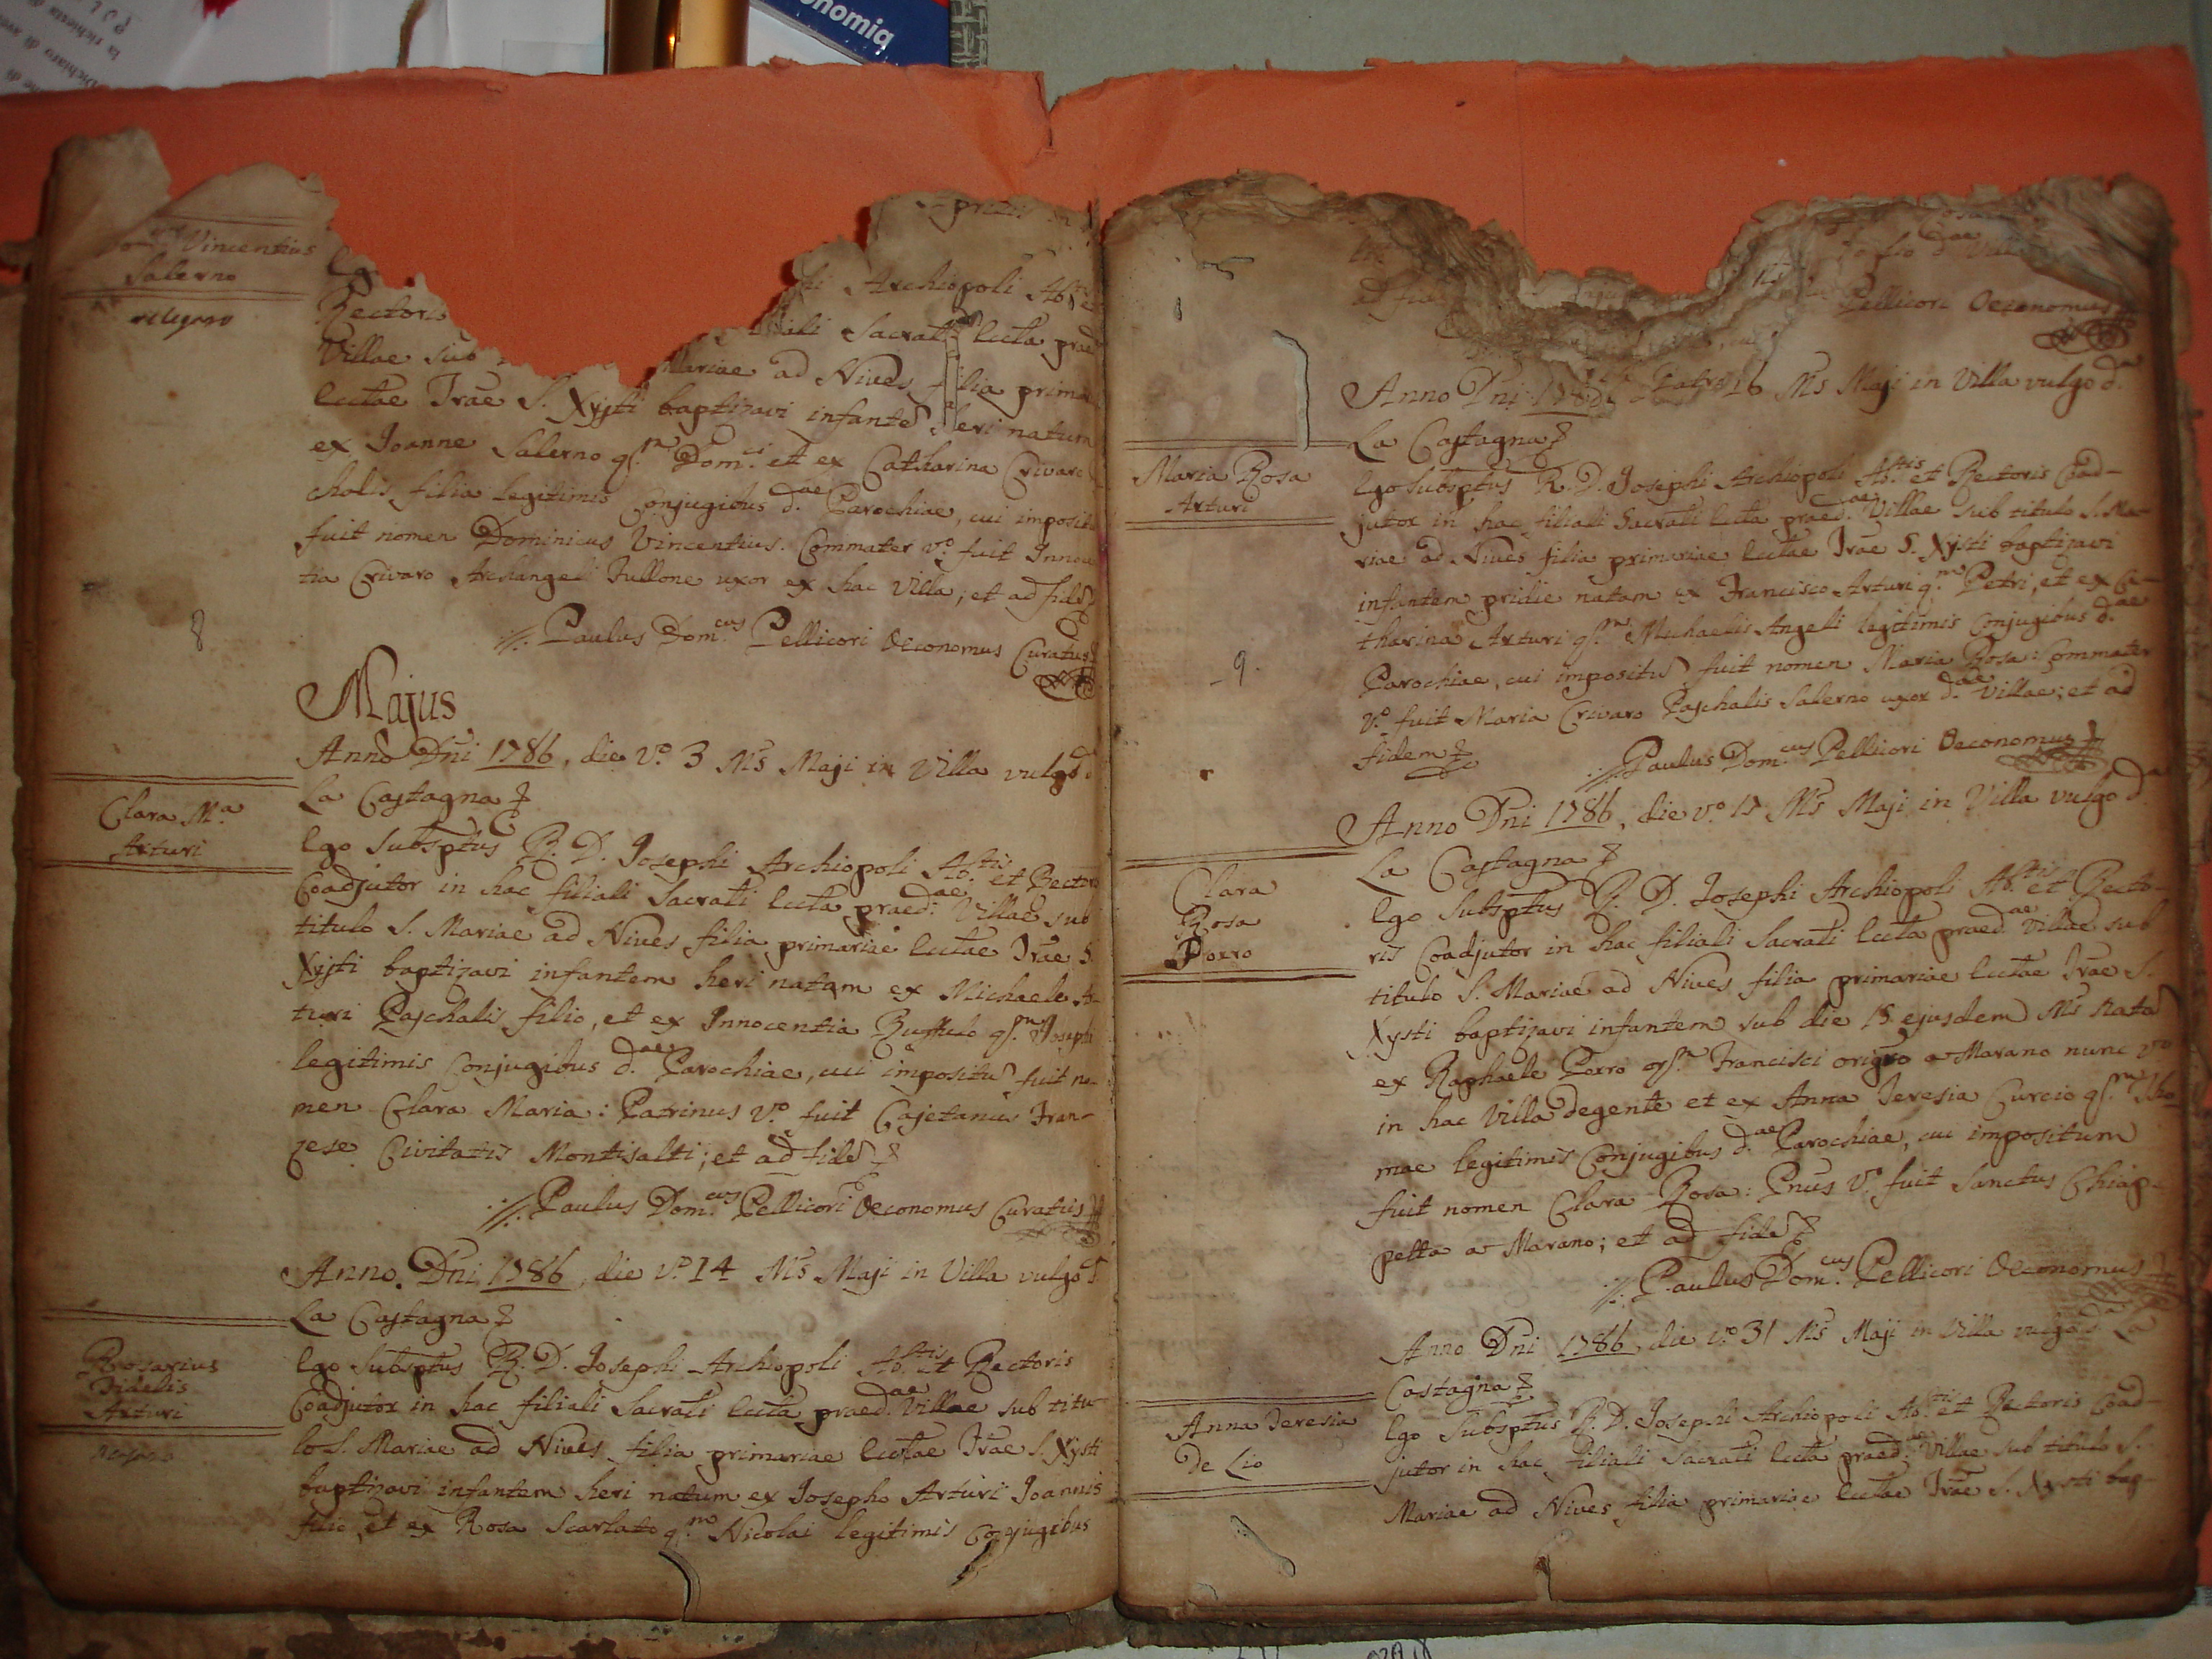 Vincentius
Salerno
Rectoris Archiopoli Ab.
Sacrati Eccta prae
Villae sub Mariae ad Nives filia prima
Ecctae Trae S. Xysti baptizavi infante heri natum
ex Joanne Salerno qm Dom.ci et ex Catharina Crivaro
chalis filia legitimis Conjugibus d.ae Parochiae, cui imposit
fuit nomen Dominicus Vincentius. Commater v.o fuit Innoce
tia Crivaro Archangeli Tullone uxor ex hac Villa; et ad fide
Paulus Dom.cus Pellicori Oeconomus Curatus
8
Majus
Anno Dni 1786, die v.o 3 Ms Maji in Villa vulgo d.
La Castagna
Clara M.a
Arturi
Ego Subsptus R. D. Josephi Archiopoli Ab.tis et Rectoris
Coadjutor in hac filiali Sacrati Eccta praed.ae Villae sub
titulo S. Mariae ad Nives filia primariae Ecctae Trae S.
Xysti baptizavi infantem heri natam ex Michaele Ar-
turi Paschalis filio, et ex Innocentia Ruffulo qm Joseph
legitimis Conjugibus d.ae Parochiae, cui impositu fuit no-
men Clara Maria: Patrinus v.o fuit Cajetanus Fran-
zese Civitatis Montisalti; et ad fide
Paulus Dom.cus Pellicori Oeconomus Curatus
Anno Dni 1786, die v.o 14 Ms Maji in Villa vulgo d.
La Castagna
Rosarius
Fidelis
Arturi
Ego Subsptus R. D. Josephi Archiopoli Ab.tis et Rectoris
Coadjutor in hac filiali Sacrati Eccta praed.ae Villae sub titu-
lo S. Mariae ad Nives filia primariae Ecctae Trae S. Xysti
baptizavi infantem heri natum ex Josepho Arturi Joannis
filio, et ex Rosa Scarlato qm Nicolai legitimis Conjugibus
d.ae Vill
Pellicori Oeconomus
Anno Dni 1786 16 Ms Maji in Villa vulgo d.a
La Castagna
Maria Rosa
Arturi
Ego Subsptus R. D. Josephi Archiopoli Ab.tis et Rectoris Coad-
jutor in hac filiali Sacrati Eccta praed.ae Villae sub titulo S. Ma-
riae ad Nives filia primariae Ecctae Trae S. Xysti baptizavi
infantem pridie natam ex Francisco Arturi qm Petri, et ex Ca-
tharina Arturi qm Michaelis Angeli legitimis Conjugibus d.ae
Parochiae, cui impositu fuit nomen Maria Rosa: Commater
v.o fuit Maria Crivaro Paschalis Salerno uxor d.ae Villae; et ad
fidem
9.
Paulus Dom.cus Pellicori Oeconomus
Anno Dni 1786, die v.o 17 Ms Maji in Villa vulgo d.a
La Castagna
Clara
Rosa
Porro
Ego Subsptus R. D. Josephi Archiopoli Ab.tis et Recto-
ris Coadjutor in hac filiali Sacrati Eccta praed.ae Villae sub
titulo S. Mariae ad Nives filia primariae Ecctae Trae S.
Xysti baptizavi infantem sub die 15 ejusdem Ms nata
ex Raphaele Porro qm Francisci origro a Marano nunc v.o
in hac Villa degente et ex Anna Teresia Curcio qm Tho-
mae legitimis Conjugibus d.ae Parochiae, cui impositum
fuit nomen Clara Rosa: Pnus v.o fuit Sanctus Chiap-
petta a Marano; et ad fide
Paulus Dom.cus Pellicori Oeconomus
Anno Dni 1786, die v.o 31 Ms Maji in Villa vulgo d.a La
Castagna
Anna Teresia
De Lio
Ego Subsptus R. D. Josephi Archiopoli Ab.tis et Rectoris Coad-
jutor in hac filiali Sacrati Eccta praed.ae Villae sub titulo S.
Mariae ad Nives filia primariae Ecctae Trae S. Xysti bap-